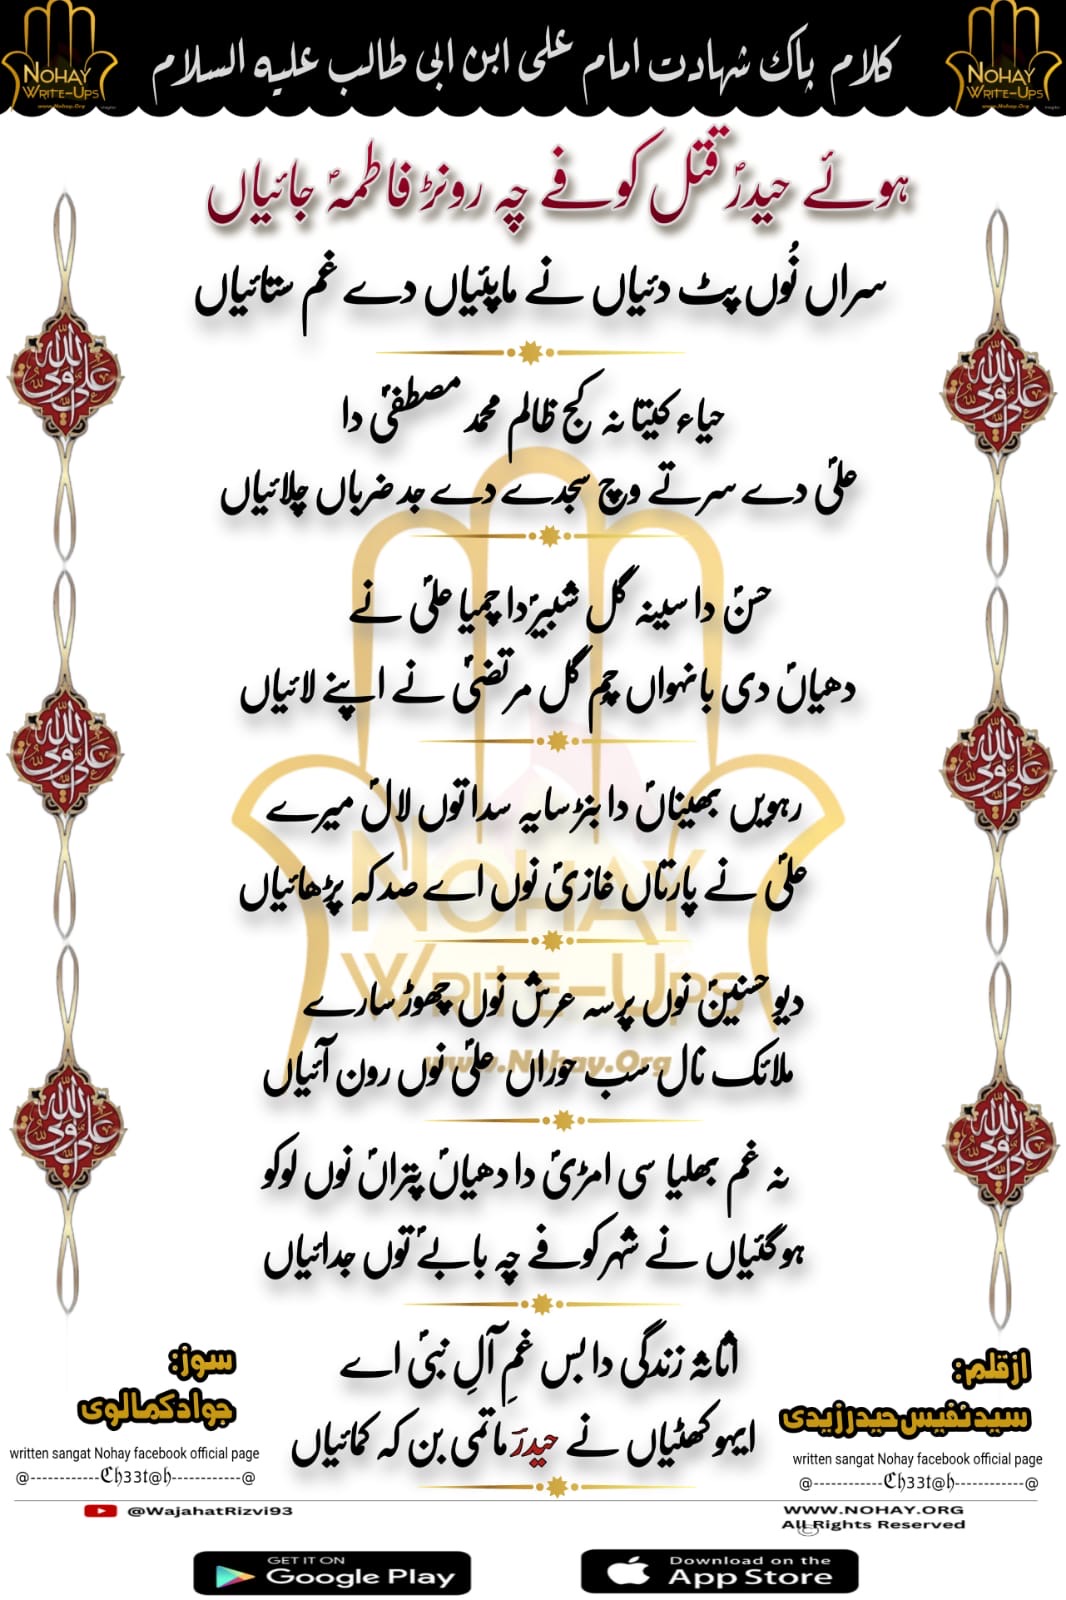 کلام پاک شہادت امام علی ابن ابی طالب علیہ السلام
NOHAY
WRITE-UPS
www.Nohay.Org
NOHAY
WRITE-UPS
www.Nohay.Org
ہوئے حیدرؑ قتل کوفے چہ رونڑ فاطمہؑ جائیاں
سراں نُوں پٹ دئیاں نے ماپئیاں دے غم ستائیاں
حیاء کیتا نہ کج ظالم محمد مصطفیؐ دا
علیؑ دے سر تے وچ سجدے دے جد ضرباں چلائیاں
حسنؑ دا سینہ گل شبیرؑ دا چمیا علیؑ نے
دھیاںؑ دی بانہواں چم گل مرتضیؑ نے اپنے لائیاں
رہویں بھیناںؑ دا بنڑ سایہ سدا توں لالؑ میرے
علیؑ نے پارتاں غازیؑ نوں اے صد کہ پڑھائیاں
دیو حسنینؑ نوں پرسہ عرش نوں چھوڑ سارے
ملائک نال سب حوراں علیؑ نوں رون آئیاں
نہ غم بھلیا سی امڑیؑ دا دھیاںؑ پتراںؑ نوں لوکو
ہو گئیاں نے شہر کوفے چہ بابےؑ توں جدائیاں
اثاثہ زندگی دا بس غمِ آلِ نبیؐ اے
ایہو کھٹیاں نے حیدرؔ ماتمی بن کہ کمائیاں
NOHAY
WRITE-UPS
www.Nohay.Org
از قلم:
سید نفیس حیدر زیدی
written sangat Nohay facebook official page
@------------Ch33t@h------------@
سوز:
جواد کمالوی
written sangat Nohay facebook official page
@------------Ch33t@h------------@
@WajahatRizvi93
WWW.NOHAY.ORG
All Rights Reserved
©
GET IT ON
Google Play
Download on the
App Store